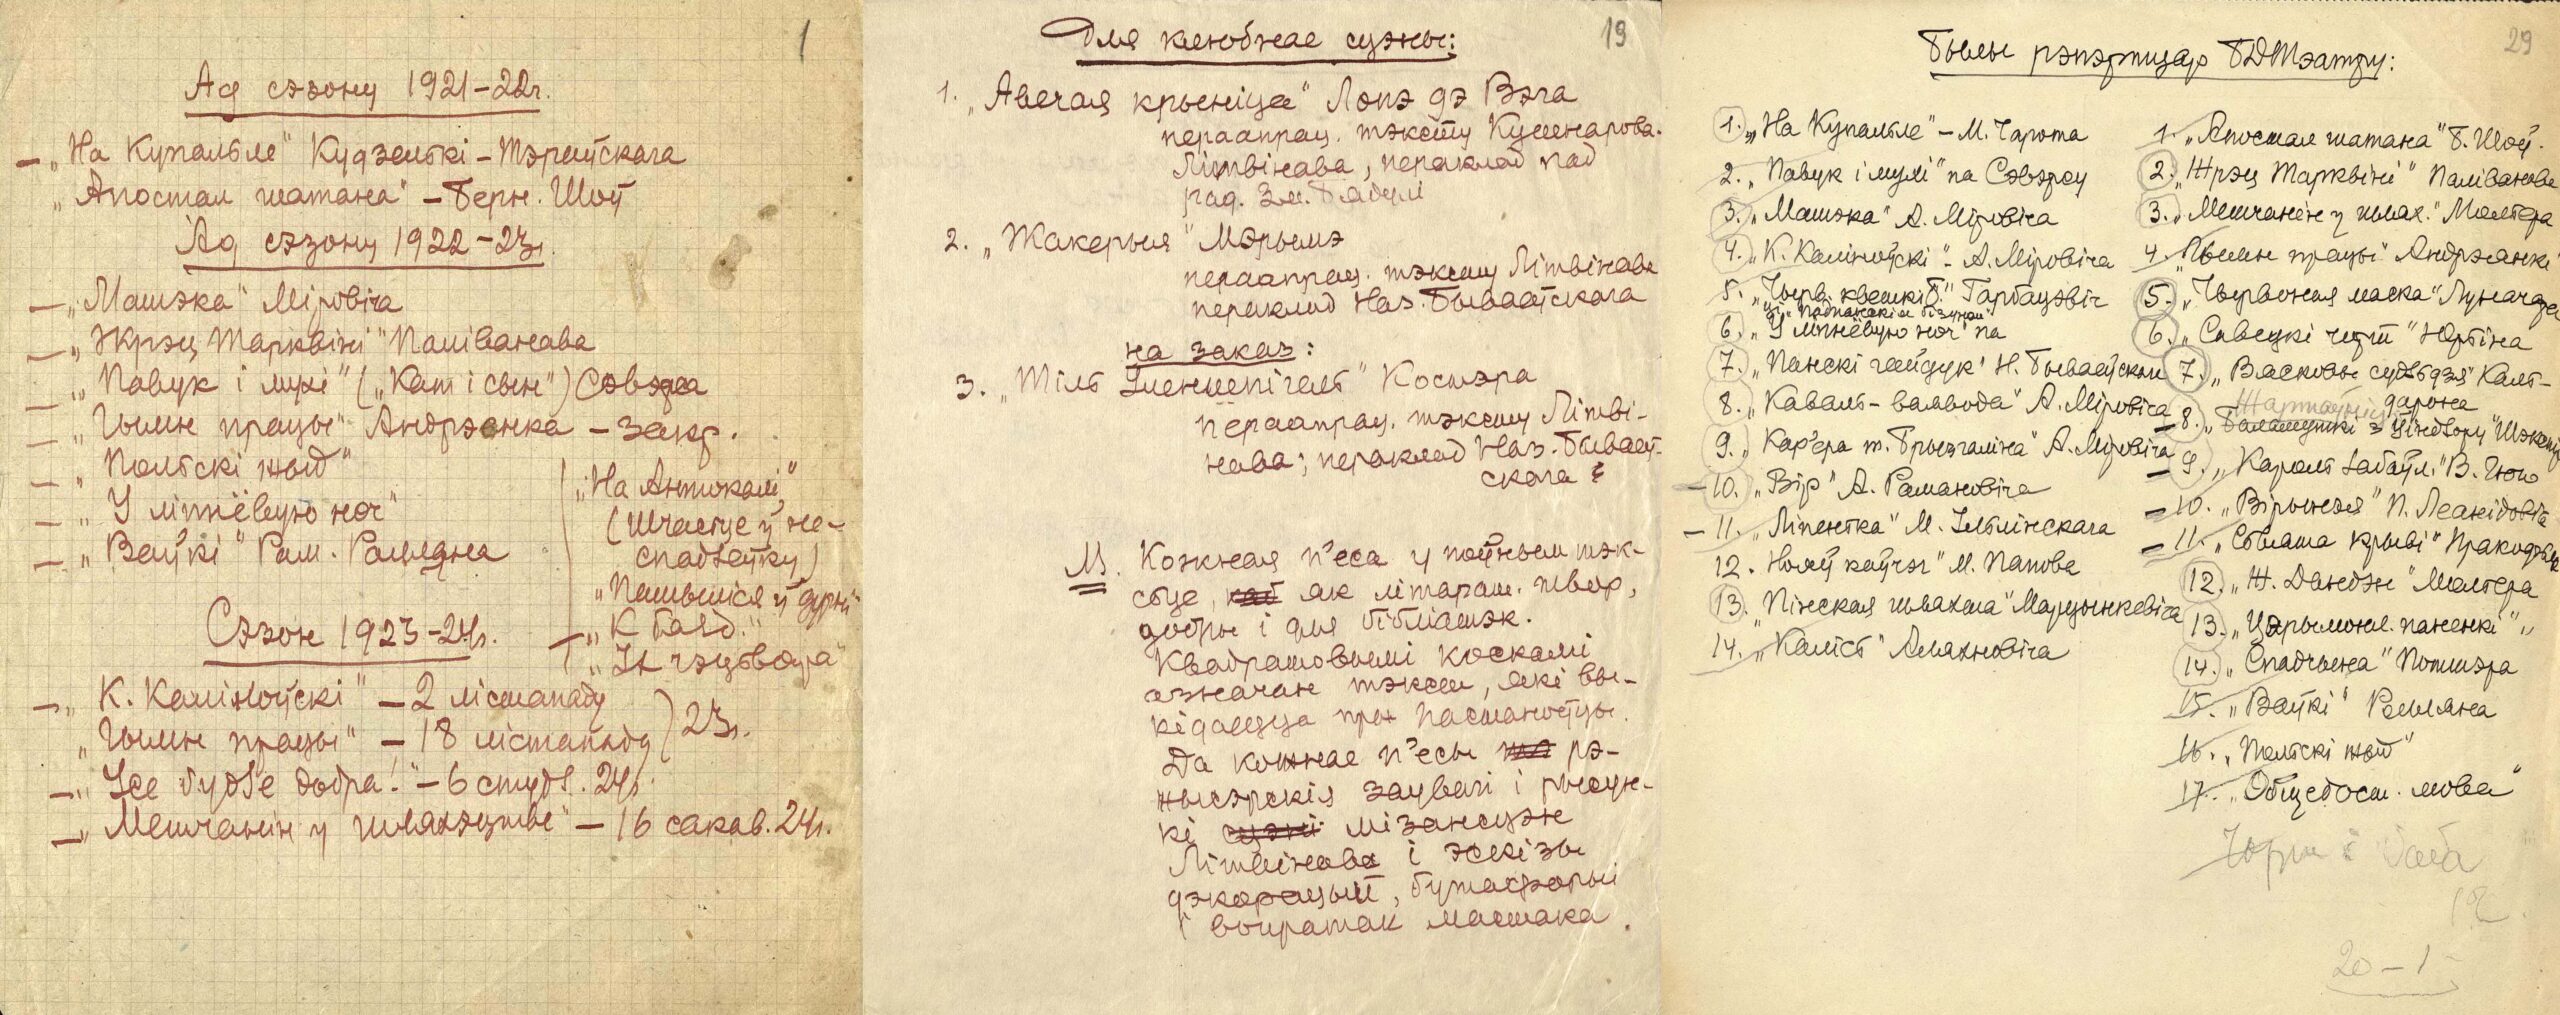 1
Ад сэзону 1921–22г.
– „На Купальле" Кудзелькі – Тэраўскага
„Апостал шатана" – Берн. Шоў
Ад сэзону 1922–23г.
– „Машэка" Міровіча
– „Жрэц Тарквіні" Паліванава
– „Павук і мухі" („Кат і сын") Сэвэра
– „Гымн працы" Андрэенка – закр.
– „Польскі жыд"
– „У ліпнёвую ноч"
– „Ваўкі" Рам. Ральляна
„На Антокалі"
(Шчасце ў не-
спадзеўку)
„Пашыліся ў дурні"
– „К баяд."
Сэзон 1923–24г.
– „К. Каліноўскі" – 2 лістападу
„Гымн працы" – 18 лістападу ) 23г.
– „Усе будзе добра!" – 6 студз. 24г.
– „Мешчанін у шляхэцтве" – 16 сакав. 24г.
19
Для клюбнае сцэны:
1. „Авечая крыніца" Лопэ дэ Вэга
пераапрац. тэксту Кушнарова-
Літвінава, пераклад пад
рэд. Зм. Бядулі
2. „Жакерыя" Мэрымэ
пераапрац. тэксту Літвінава
пераклад Наз. Бываеўскага
на заказ:
3. „Тіль Уленшпігель" Костэра
пераапрац. тэксту Літві-
нава; пераклад Наз. Бываеў-
скага
Кожная п'еса у поўным тэк-
сьце, каб як літарат. твор,
добры і для бібліатэк.
Квадратовымі коскамі
азначан тэкст, які вы-
кідаецца пры пастаноўцы.
Да кожнае п'есы рэ-
жысэрскія заувагі і рысун-
кі сцэні мізансцэн
Літвінава і эскізы
дэкорацый, бутафорыі
і вопратак мастака.
29
Былы рэпэртуар БДТэатру:
1. „На Купальле" – М. Чарота
2. „Павук і мухі" па Сэвэру
3. „Машэка" А. Міровіча
4. „К. Каліноўскі" – А. Міровіча
5. „Чырв. кветкі Б." Гарбацэвіч
6. „У ліпнёвую ноч" па
7. „Панскі гайдук" Н. Бываеўскаг
8. „Каваль-ваявода" А. Міровіча
9. „Кар'ера т. Брызгаліна" А. Міровіча
– 10. „Вір" А. Рамановіча
– 11. „Ліпентка" М. Ільлінскага
12. Ноеў каўчэг" М. Папова
13. „Пінская шляхта" Марцынкевіча
14. „Калісь" Аляхновіча
1. „Апостал шатана" Б. Шоў.
2. „Жрэц Тарквіні" Паліванава
3. „Мешчанін у шлях." Мольера
4. „Гымн працы" Андрэянкі
5. „Чырвоная маска" Луначар
6. „Савецкі чорт" Юрьіна
7. „Васковы судьдзя" Кальдэрона
Жартаўніцы
– 8. „Баламуткі з Уіндзору" Шэкспір
– 9. „Кароль забаўл." В. Гюго
– 10. „Вірынэя" П. Леанідовіч
– 11. „Сьвята крыві"
12. „Ж. Дандэн" Мольера
13. „Цырымонн. паненкі" „
14. „Спадчына" Потшэра
15. „Ваўкі" Ральляна
16. „Польскі жыд"
17. „Общедост. мова"
20 – 1